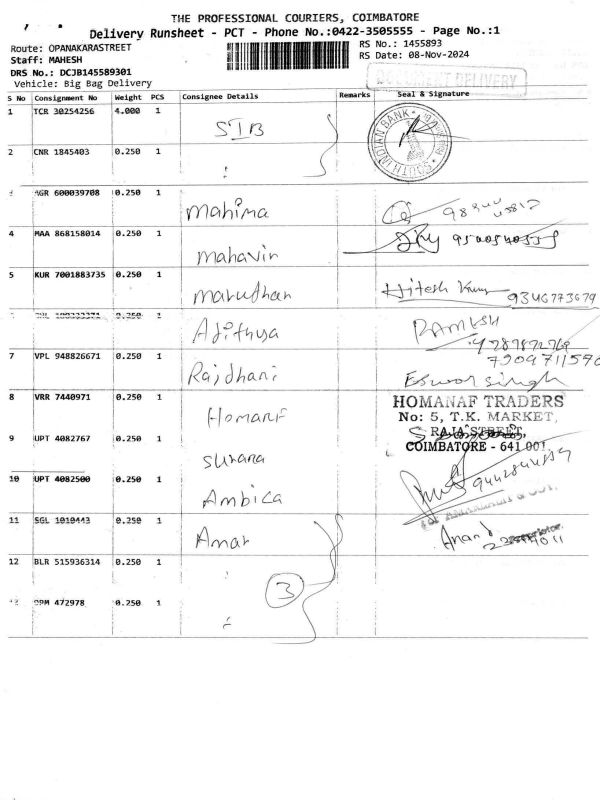 THE PROFESSIONAL COURIERS, COIMBATORE
Delivery Runsheet - PCT - Phone No.:0422-3505555 - Page No.:1
Route: OPANAKARASTREET
RS No.: 1455893
Staff: MAHESH
RS Date: 08-Nov-2024
DRS No.: DCJB145589301
Vehicle: Big Bag Delivery
DOCUMENT DELIVERY
S No Consignment No Weight PCS Consignee Details Remarks Seal & Signature
1 TCR 30254256 4.000 1 SIB
SOUTH INDIAN BANK
2 CNR 1845403 0.250 1 :
AGR 600039708 0.250 1 Mahima
4 MAA 868158014 0.250 1 Mahavir
5 KUR 7001883735 0.250 1 Marudhar Hitesh Kumar 9346773679
0.250 1 Adithya RAMESH
7 VPL 948826671 0.250 1 Rajdhani Eswor singh
8 VRR 7440971 0.250 1 Homanf
HOMANAF TRADERS
No: 5, T.K. MARKET,
RAJA STREET,
COIMBATORE - 641 001.
9 UPT 4082767 0.250 1 Surana
10 UPT 4082500 0.250 1 Ambica
11 SGL 1010443 0.250 1 Amar Anand
12 BLR 515936314 0.250 1 :
3
472978 0.250 1 :